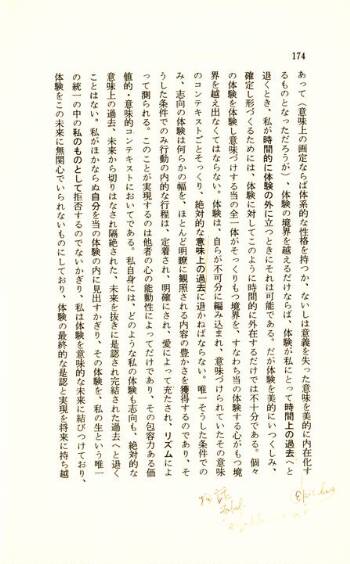 174
あって（意味上の画定ならば体系的な性格を持つか、ないしは意義を失った意味を美的に内在化す
るものとなっただろうが）、体験の境界を越えるだけならば、体験が私にとって時間上の過去へと
退くとき、私が時間的に体験の外に立つときにそれは可能である。だが体験を美的にいつくしみ、
確定し形づくるためには、体験に対してこのように時間的に外在するだけでは不十分である。個々
の体験を体験し意味づけする当の全一体がそっくりもつ境界を、すなわち当の体験する心がもつ境
界を越え出なくてはならない。体験は、自らが不可分に編み込まれ、意味づけられていたその意味
のコンテキストごとそっくり、絶対的な意味上の過去に退かねばならない。唯一そうした条件での
み、志向の体験は何らかの幅を、ほとんど明瞭に観照される内容の豊かさを獲得するのであり、そ
うした条件でのみ行動の内的な行程は、定着され、明確にされ、愛によって充たされ、リズムによ
って測られる。このことが実現するのは他者の心の能動性によってだけであり、その包容力ある価
値的・意味的コンテキストにおいてである。私自身には、どのような私の体験も志向も、絶対的な
意味上の過去、未来から切りはなされ隔絶された、未来を抜きに是認され完結された過去へと退く
ことはない。私がほかならぬ自分を当の体験の内に見出すかぎり、その体験を、私の生という唯一
の統一の中の私のものとして拒否するのでないかぎり、私は体験を意味的な未来に結びつけており、
体験をこの未来に無関心でいられないものにしており、体験の最終的な是認と実現を将来に持ち越